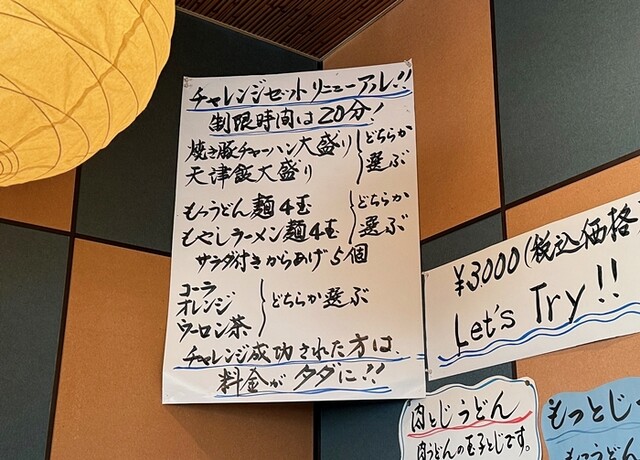 チャレンジセットリニューアル!!
制限時間は20分!
焼き豚チャーハン大盛り
天津飯大盛り
どちらか
選ぶ
もつうどん麺4玉
もやしラーメン麺4玉
どちらか
選ぶ
サラダ付きからあげ5個
コーラ
オレンジ
ウーロン茶
どちらか選ぶ
チャレンジ成功された方は、
料金がタダに!!
¥3000(税込価格
Let's Try!!
肉とじうどん
肉うどんの玉子とじです。
もっとじ
もつうどん